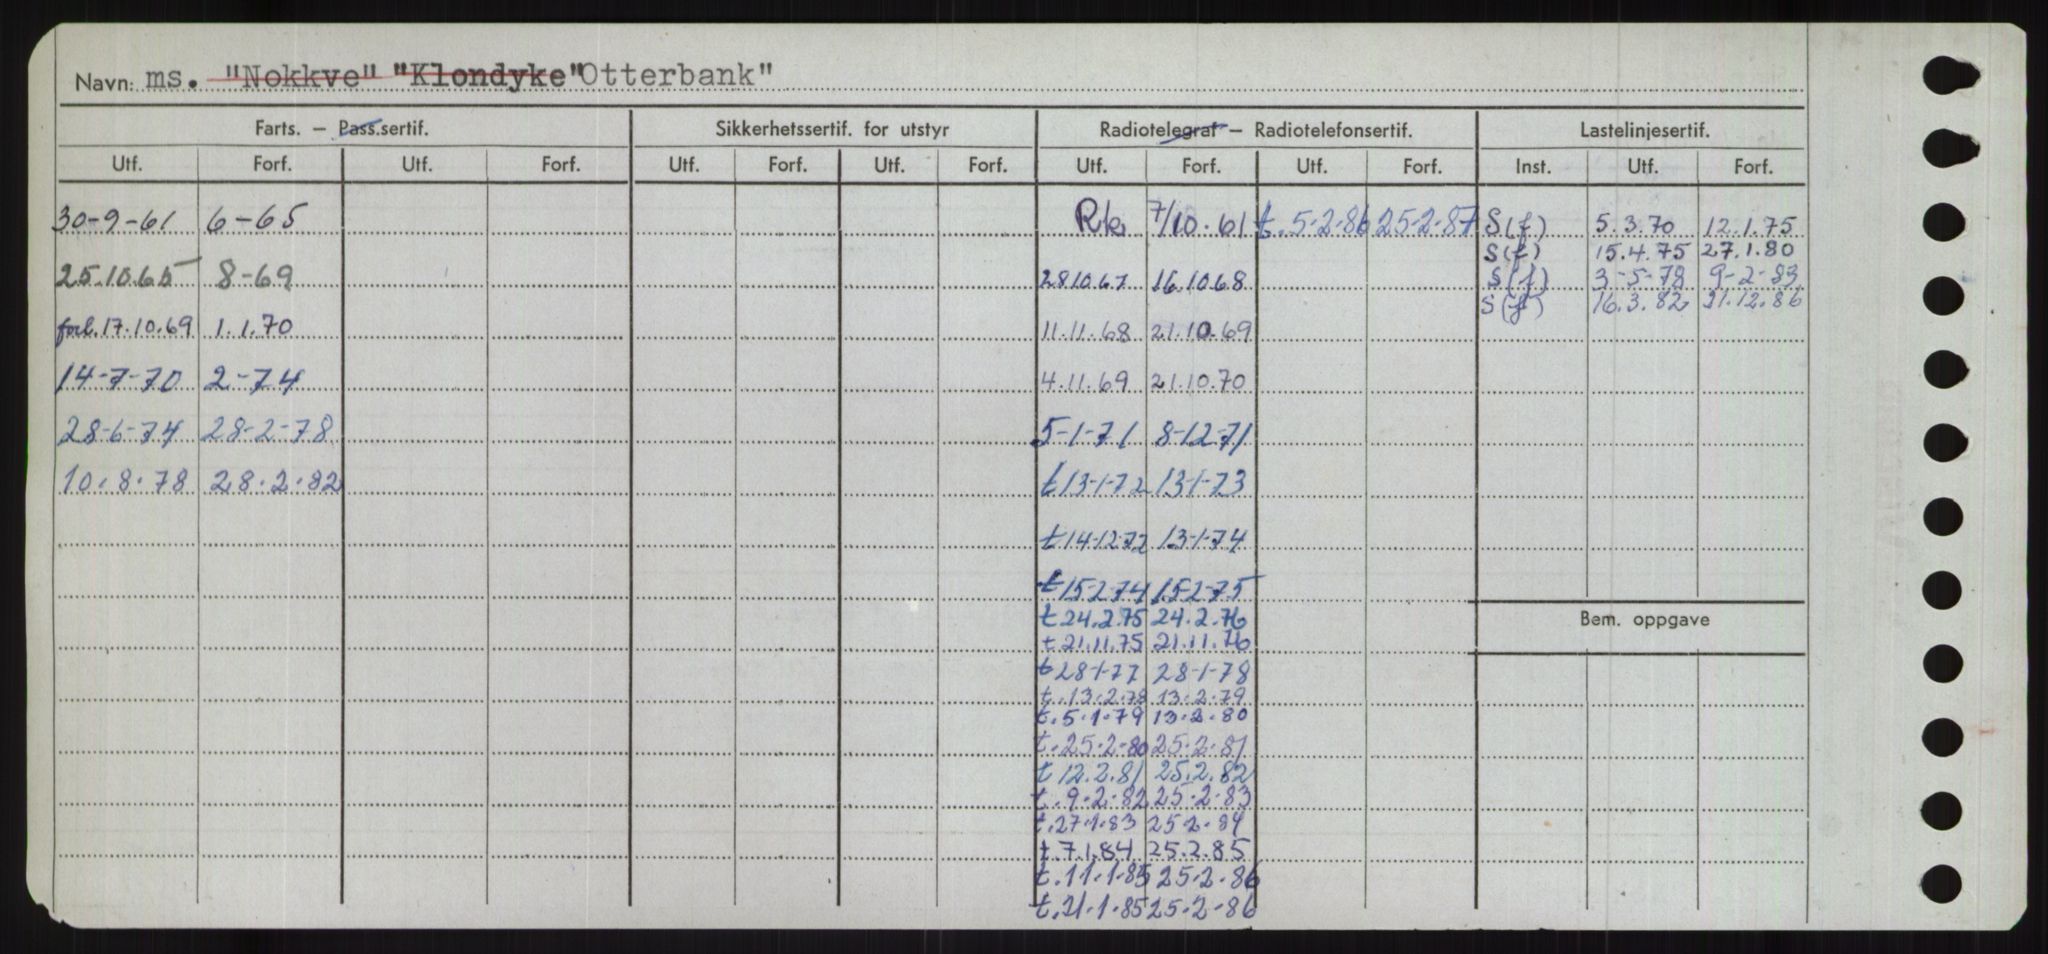 Navn: ms. "Nokkve" "Klondyke" Otterbank"
Farts. — Pass.sertif. Sikkerhetssertif. for utstyr Radiotelegraf — Radiotelefonsertif. Lastelinjesertif.
Utf. Forf. Utf. Forf. Utf. Forf. Utf. Forf. Utf. Forf. Utf. Forf. Inst. Utf. Forf.
30-9-61 6-65 Rk. 7/10.61 t. 5-2-86 25-2-87 S(f) 5.3.70 12.1.75
S(f) 15.4.75 27.1.80
25.10.65 8-69 28.10.67 16.10.68 S(f) 3-5-78 9-2-83
S(f) 16.3.82 21.12.86
forl. 17.10.69 1.1.70 11.11.68 21.10.69
14-7-70 2-74 4.11.69 21.10.70
28-6-74 28-2-78 5-1-71 8-12-71
10.8.78 28.2.82 t 13-1-72 13-1-73
t 14-12-72 13-1-74
t 15-2-74 15-2-75
t 24.2.75 24.2.76
Bem. oppgave
t 21.11.75 21.11.76
t 28-1-77 28-1-78
t. 13.2.78 13.2.79
t. 5.1.79 13.2.80
t. 25.2.80 25.2.81
t 12.2.81 25.2.82
t. 9.2.82 25.2.83
t. 27.1.83 25.2.84
t. 7.1.84 25.2.85
t. 11.1.85 25.2.86
t. 21.1.85 25.2.86